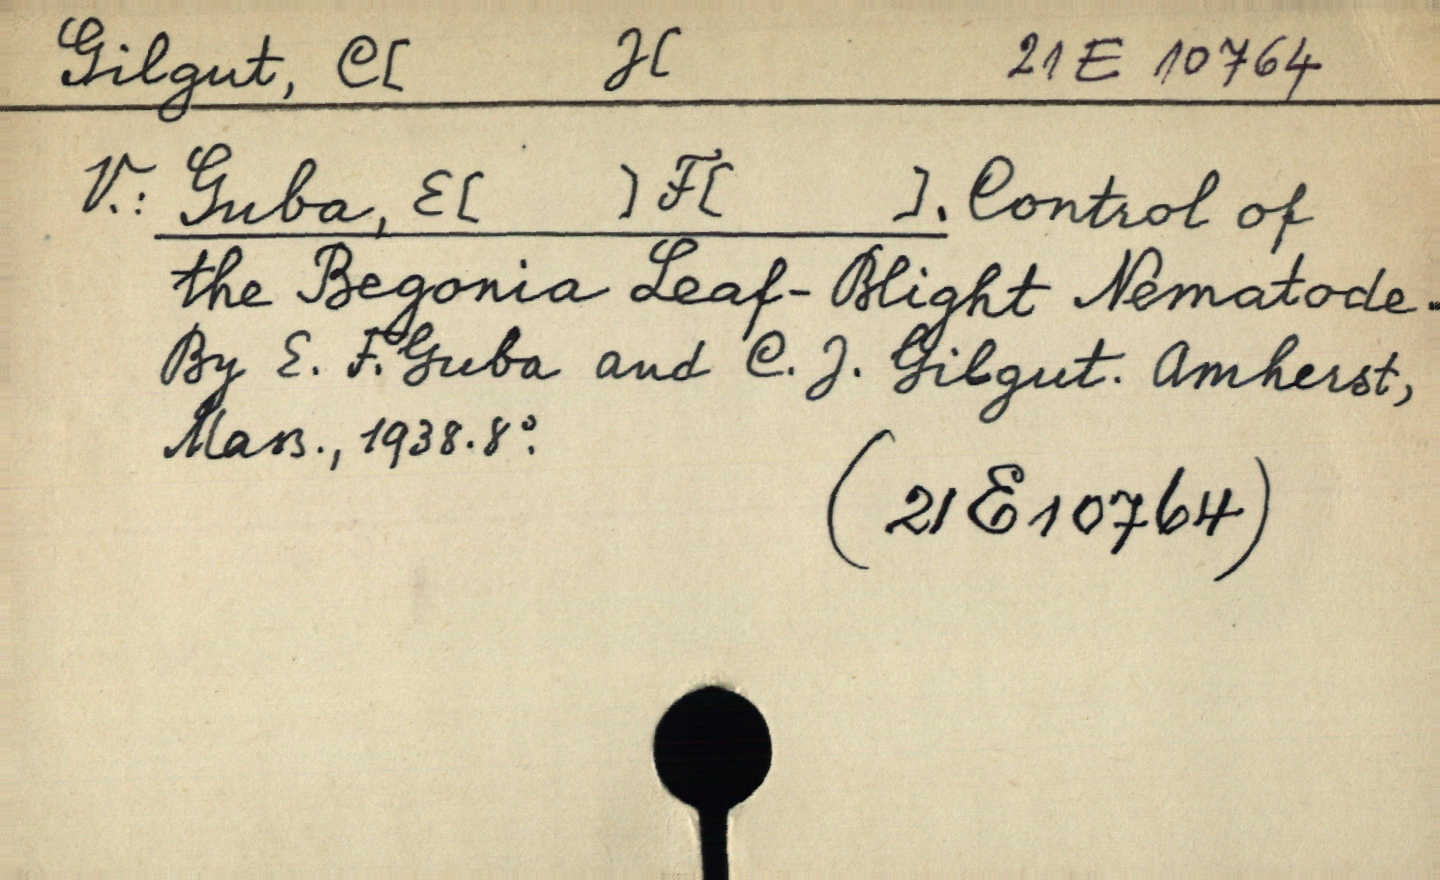 Gilgut, C[ J[ 21 E 10764
V.: Guba, E[ ] F[ ]. Control of
the Begonia Leaf-Blight Nematode.
By E. F. Guba and C. J. Gilgut. Amherst,
Mass., 1938. 8°.
(21 E 10764)